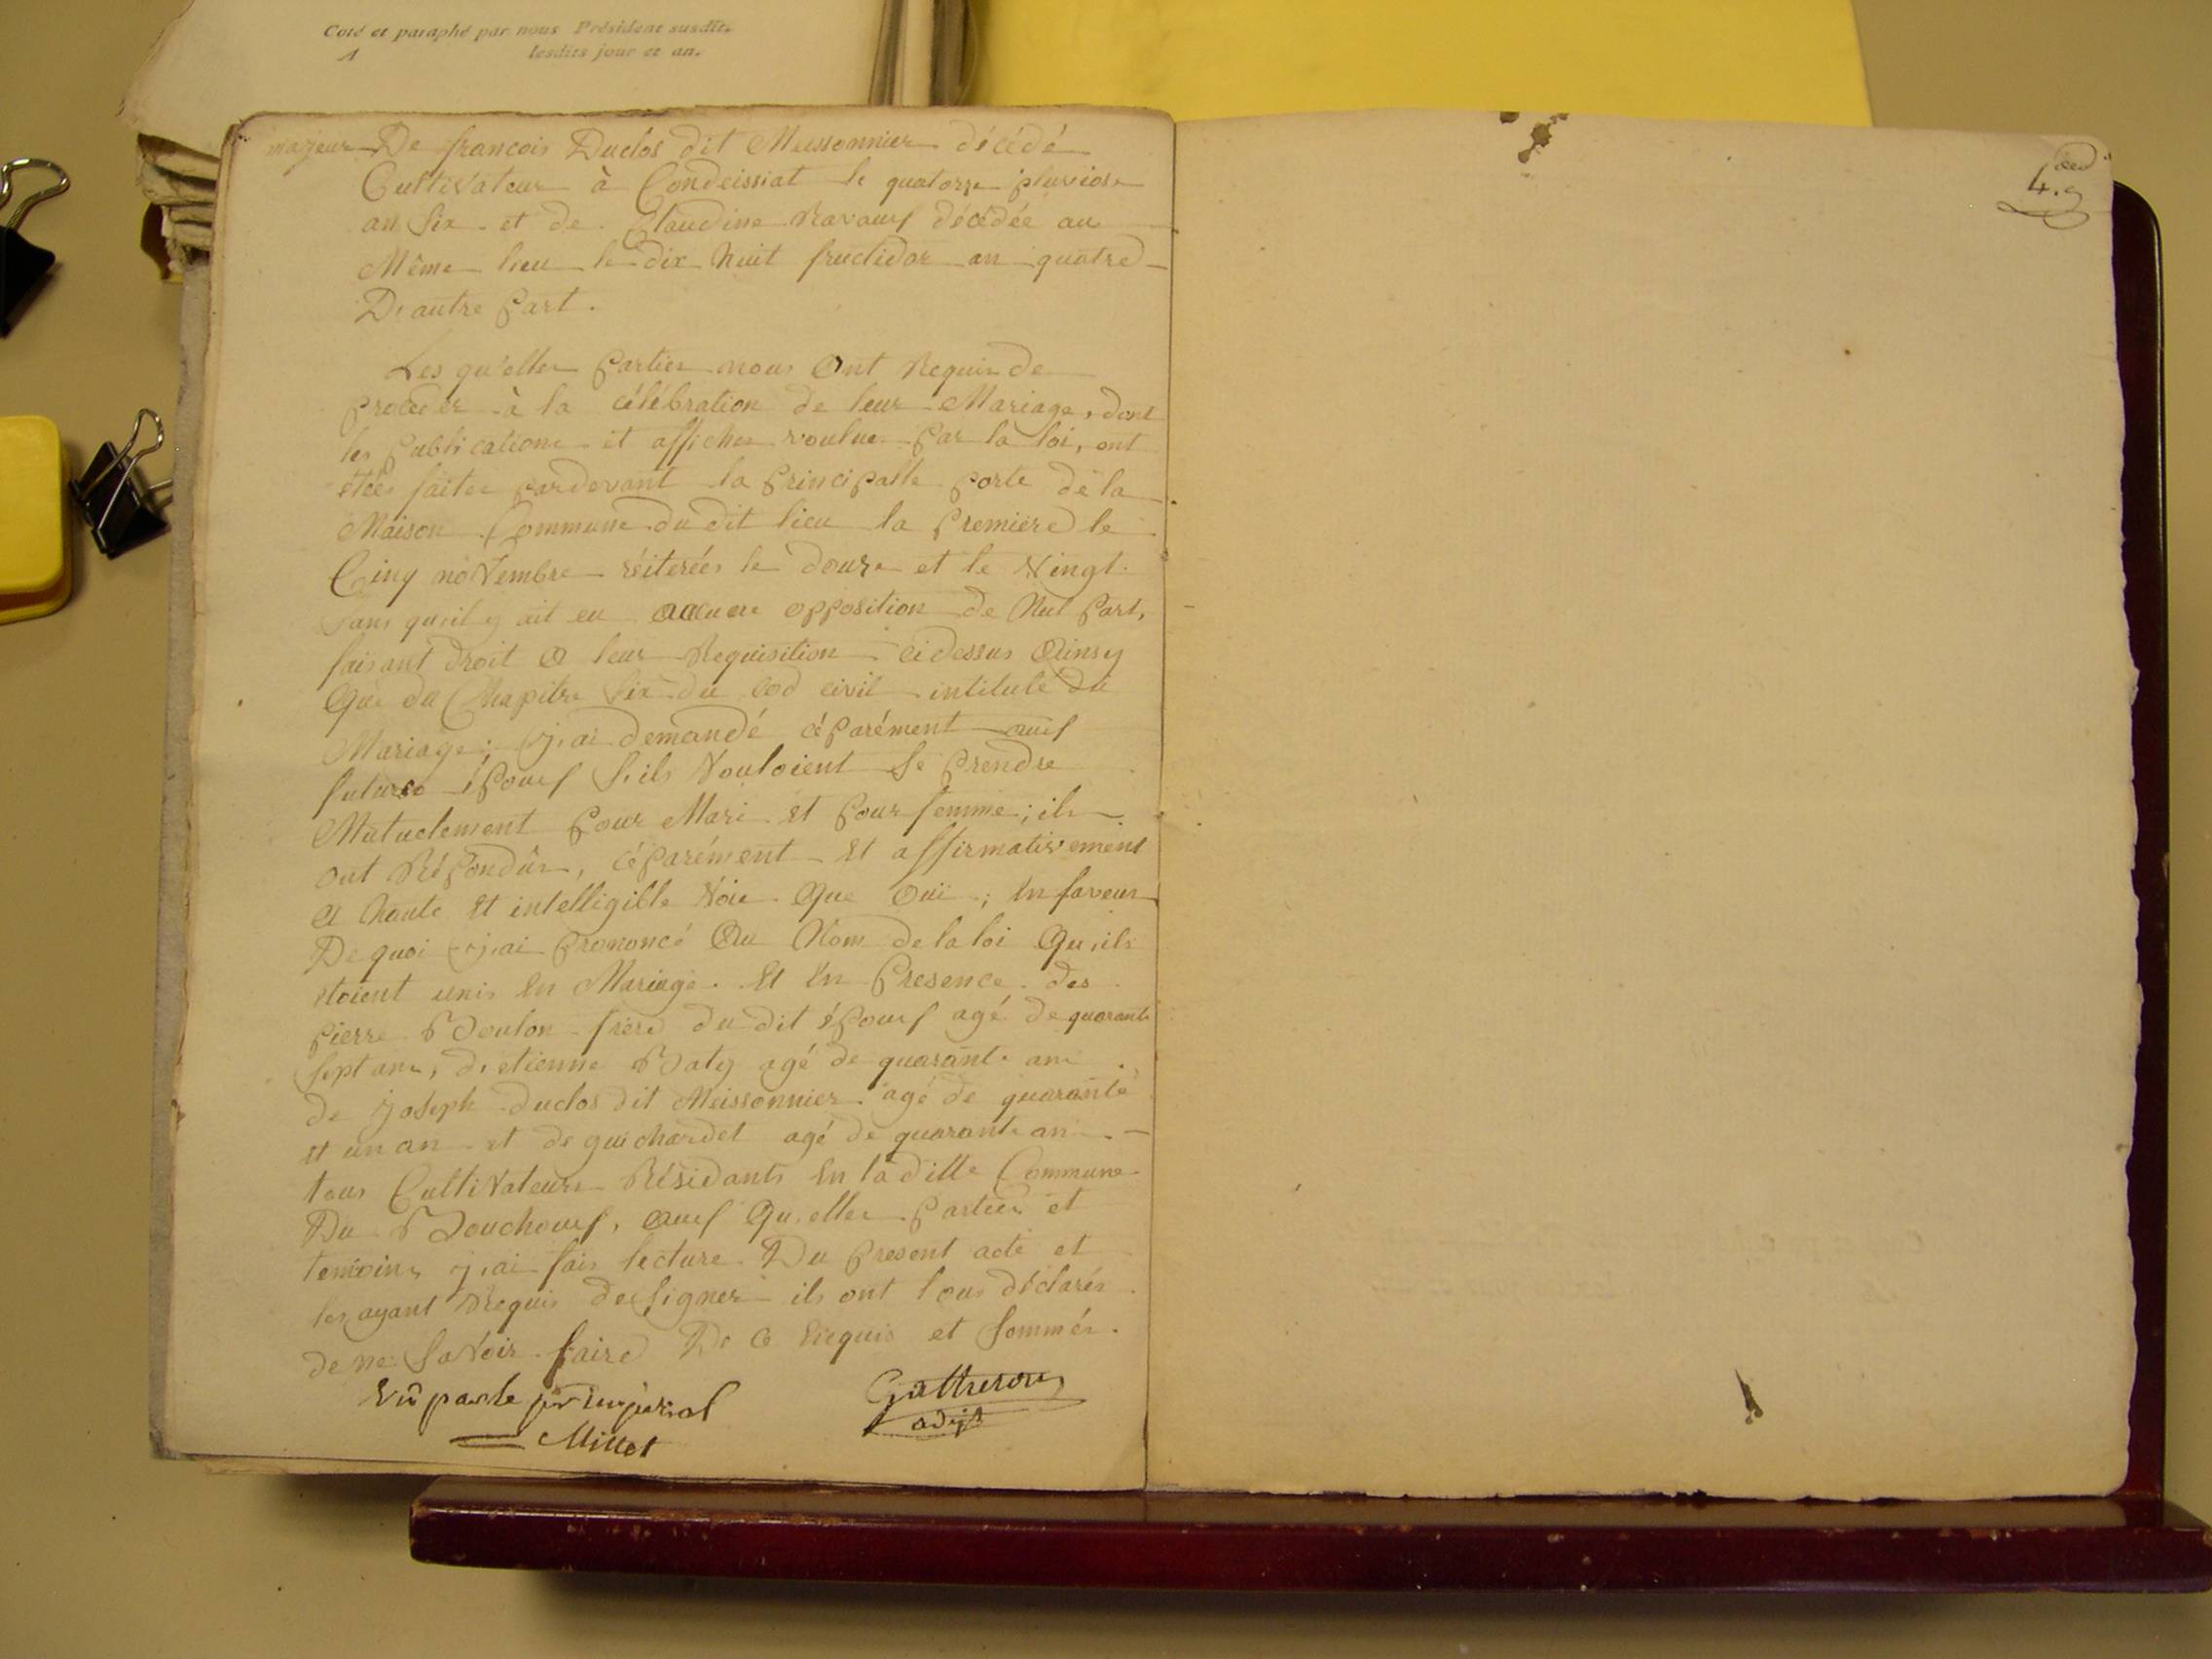 Coté et paraphé par nous Président susdit,
1 lesdits jour et an.
majeur De francois Duclos dit Meissonnier décédé
Cultivateur à Condeissiat le quatorze pluviose
an Six et de Claudine Ravaux décédée au
Même lieu le dix huit fructidor an quatre
D'autre Part.
Les qu'elles Parties nous Ont Requis de
procéder à la célébration de leur Mariage, dont
les Publications et affiches voulue Par la loi, ont
étées faites pardevant la Principalle Porte de la
Maison Commune du dit lieu la Premiere le
Cinq novembre réiterées le douze et le Vingt
Sans qu'il y ait eu aucune opposition de Nul Part,
faisant droit a leur Requisition ci dessus Ainsy
Que du Chapitre Six du cod civil intitulé du
Mariage; j'ai demandé céParément aux
futures éPoux S'ils Vouloient Se Prendre
Mutuelement Pour Mari et Pour femme; ils
ont RéPondûs, céParément Et affirmativement
A haute Et intelligible Voie Que Oui; En faveur
De quoi j'ai Prononcé Au Nom de la loi Qu'ils
étoient unis En Mariage. Et En Presence des
Pierre Boulon frere du dit éPoux agé de quarante
Sept ans, d'etienne Baty agé de quarante ans
de joseph duclos dit Meissonnier agé de quarante
et un an et de guichardet agé de quarante ans
tous Cultivateurs Résidants En la ditte Commune
Du Bouchoux, aux Qu'elles Parties et
temoins j'ai fais lecture Du Present acte et
les ayant Requis de Signer ils ont tous déclarés
de ne Savoir faire De Ce Enquis et Sommés.
Vû par le pr imperial
Millet
Guttheron
adjt
4.